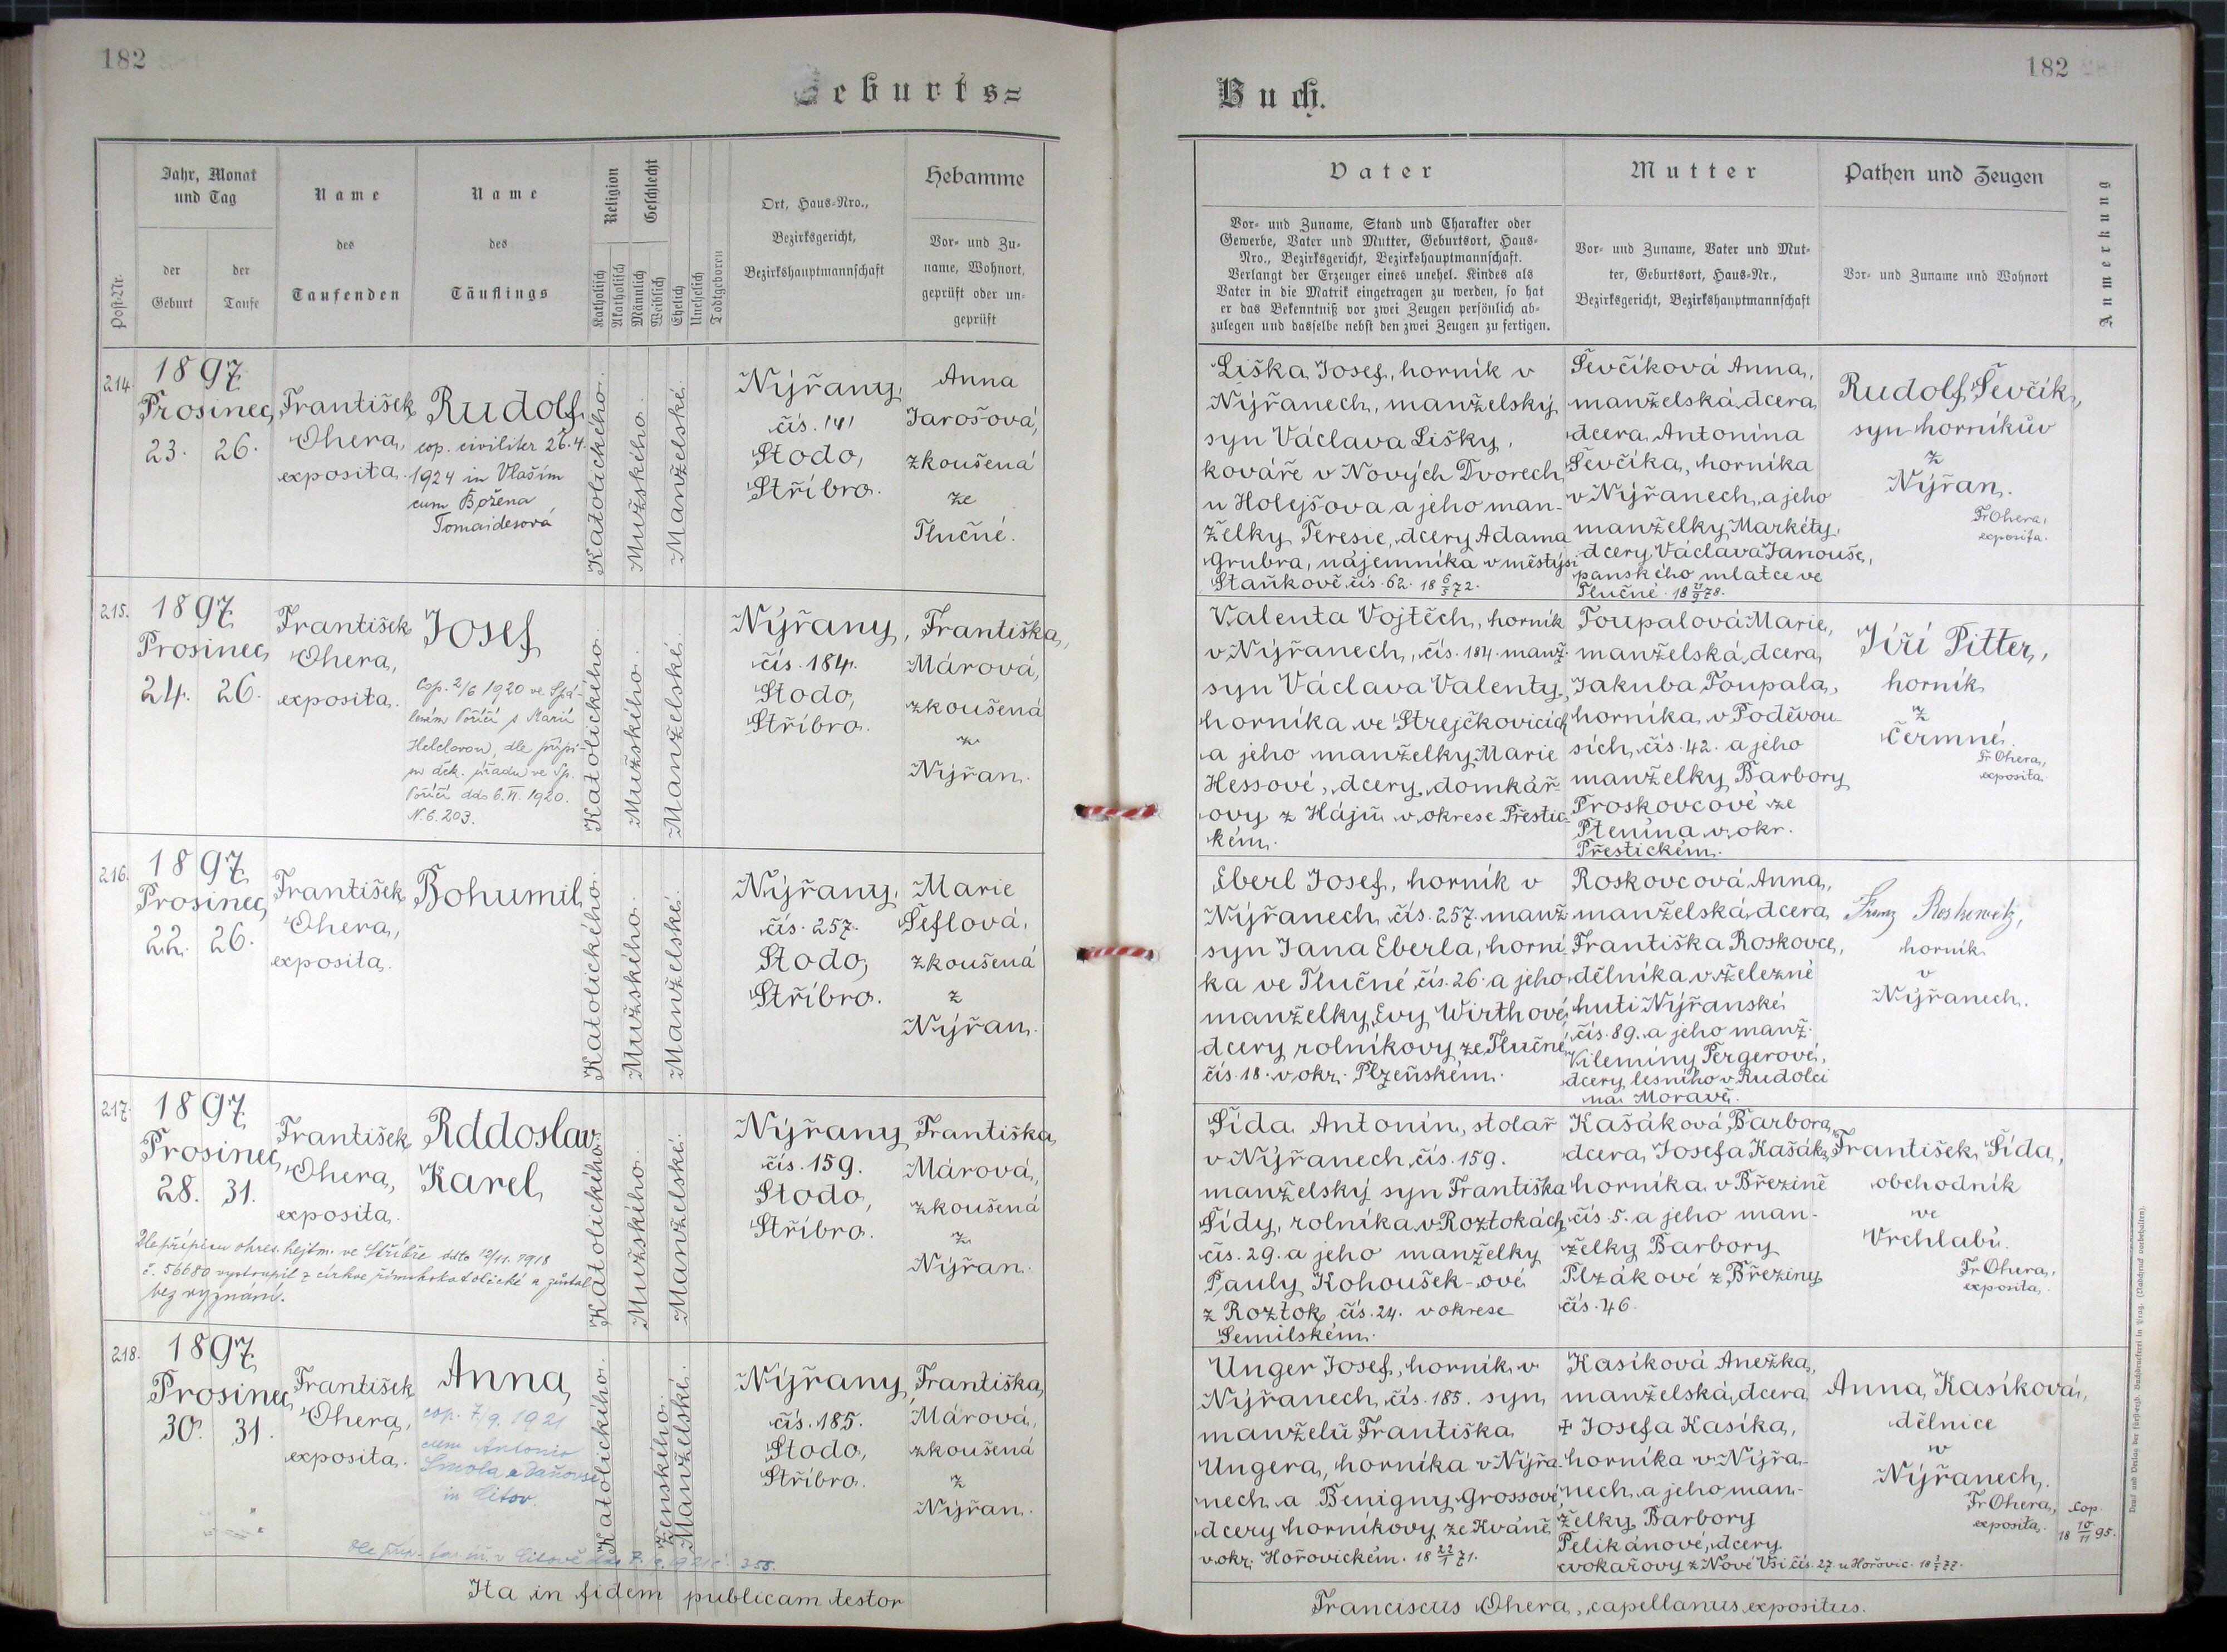 182
Geburts=
Post-Nr.
Jahr, Monat
und Tag
der
Geburt
der
Taufe
Name
des
Taufenden
Name
des
Täuflings
Religion
Katholisch
Akatholisch
Geschlecht
Männlich
Weiblich
Ehelich
Unehelich
Todtgeboren
Ort, Haus-Nro.,
Bezirksgericht,
Bezirkshauptmannschaft
Hebamme
Vor- und Zu-
name, Wohnort,
geprüft oder un-
geprüft
214.
1897
Prosinec
23. 26.
František
Ohera,
exposita.
Rudolf
cop. civiliter 26.4.
1924 in Vlašim
cum Božena
Tomaidesová
Katolického.
Mužského.
Manželské.
Nýřany,
čís. 141
Stodo,
Stříbro.
Anna
Jarošová,
zkoušená
ze
Tlučné.
215.
1897
Prosinec
24. 26.
František
Ohera,
exposita.
Josef
Cop. 2/6 1920 ve Spá-
leném Poříčí s Marií
Helclovou, dle přípi-
su děk. úřadu ve Sp.
Poříčí ddo 6.VI. 1920.
N. 6. 203.
Katolického.
Mužského.
Manželské.
Nýřany,
čís. 184.
Stodo,
Stříbro.
Františka
Márová,
zkoušená
z
Nýřan.
216.
1897
Prosinec
22. 26.
František
Ohera,
exposita.
Bohumil
Katolického.
Mužského.
Manželské.
Nýřany,
čís. 257.
Stodo,
Stříbro.
Marie
Šeflová,
zkoušená
z
Nýřan.
217.
1897
Prosinec
28. 31.
František
Ohera,
exposita.
Rddoslav
Karel
Dle přípisu okres. hejtm. ve Stříbře ddto 12/11. 1918
č. 56680 vystoupil z církve římskokatolické a zůstal
bez vyznání.
Katolického.
Mužského.
Manželské.
Nýřany
čís. 159.
Stodo,
Stříbro.
Františka
Márová,
zkoušená
z
Nýřan.
218.
1897
Prosinec
30. 31.
František
Ohera,
exposita.
Anna
cop. 7/9. 1921
cum Antonio
Smola e
in Litov.
Katolického.
Ženského.
Manželské.
Nýřany,
čís. 185.
Stodo,
Stříbro.
Františka
Márová,
zkoušená
z
Nýřan.
v Litově
355.
Ita in fidem publicam testor
182
Buch.
Vater
Vor- und Zuname, Stand und Charakter oder
Gewerbe, Vater und Mutter, Geburtsort, Haus-
Nro., Bezirksgericht, Bezirkshauptmannschaft.
Verlangt der Erzeuger eines unehel. Kindes als
Vater in die Matrik eingetragen zu werden, so hat
er das Bekenntniß vor zwei Zeugen persönlich ab-
zulegen und dasselbe nebst den zwei Zeugen zu fertigen.
Mutter
Vor- und Zuname, Vater und Mut-
ter, Geburtsort, Haus-Nr.,
Bezirksgericht, Bezirkshauptmannschaft
Pathen und Zeugen
Vor- und Zuname und Wohnort
Anmerkung
Liška Josef, horník v
Nýřanech, manželský
syn Václava Lišky,
kováře v Nových Dvorech
u Holejšova a jeho man-
želky Teresie, dcery Adama
Grubra, nájemníka v městysi
Staňkově čís. 62. 18 6/3 72.
Ševčíková Anna,
manželská dcera
dcera Antonína
Ševčíka, horníka
v Nýřanech, a jeho
manželky Markéty,
dcery Václava Janouše,
panského mlatce ve
Tlučné. 18 21/9 78.
Rudolf Ševčík,
syn horníkův
z
Nýřan.
Fr Ohera,
exposita.
Valenta Vojtěch, horník
v Nýřanech, čís. 184. manž.
syn Václava Valenty,
horníka ve Strejčkovicích
a jeho manželky Marie
Hessové, dcery domkář-
ovy z Hájů v okrese Přestic-
kém.
Toupalová Marie,
manželská dcera
Jakuba Toupala,
horníka v Poděvou-
sích, čís. 42. a jeho
manželky Barbory
Proskovcové ze
Ptenína v okr.
Přestickém.
Jiří Pitter,
horník
z
Čermné.
Fr Ohera,
exposita.
Eberl Josef, horník v
Nýřanech čís. 257. manž.
syn Jana Eberla, horní-
ka ve Tlučné čís. 26. a jeho
manželky Evy Wirthové
dcery rolníkovy ze Tlučné
čís. 18. v okr. Plzeňském.
Roskovcová Anna,
manželská dcera
Františka Roskovce,
dělníka v železné
huti Nýřanské
čís. 89. a jeho manž.
Vileminy Pergerové,
dcery lesního v Rudolci
na Moravě.
Franz Roskowetz,
horník
v
Nýřanech.
Šída Antonín, stolař
v Nýřanech čís. 159.
manželský syn Františka
Šídy, rolníka v Roztokách
čís. 29. a jeho manželky
Pauly Kohoušek-ové
z Roztok čís. 24. v okrese
Semilském.
Kašáková Barbora,
dcera Josefa Kašáka,
horníka v Březině
čís 5. a jeho man-
želky Barbory
Plzákové z Březiny
čís. 46.
František Šída,
obchodník
ve
Vrchlabí.
Fr. Ohera,
exposita.
Unger Josef, horník v
Nýřanech, čís. 185. syn
manželů Františka
Ungera, horníka v Nýřa-
nech a Benigny Grossové
dcery horníkovy ze Kváně
v okr. Hořovickém. 18 22/1 71.
Kasíková Anežka,
manželská dcera
+ Josefa Kasíka,
horníka v Nýřa-
nech a jeho man-
želky Barbory
Pelikánové, dcery
cvokařovy z Nové Vsi čís. 27. u Hořovic. 18 3/1 77.
Anna Kasíková,
dělnice
v
Nýřanech.
Fr Ohera,
exposita.
Cop.
18 10/11 95.
Franciscus Ohera, capellanus expositus.
Druck und Verlag der fürsterzb. Buchdruckerei in Prag. (Nachdruck vorbehalten).